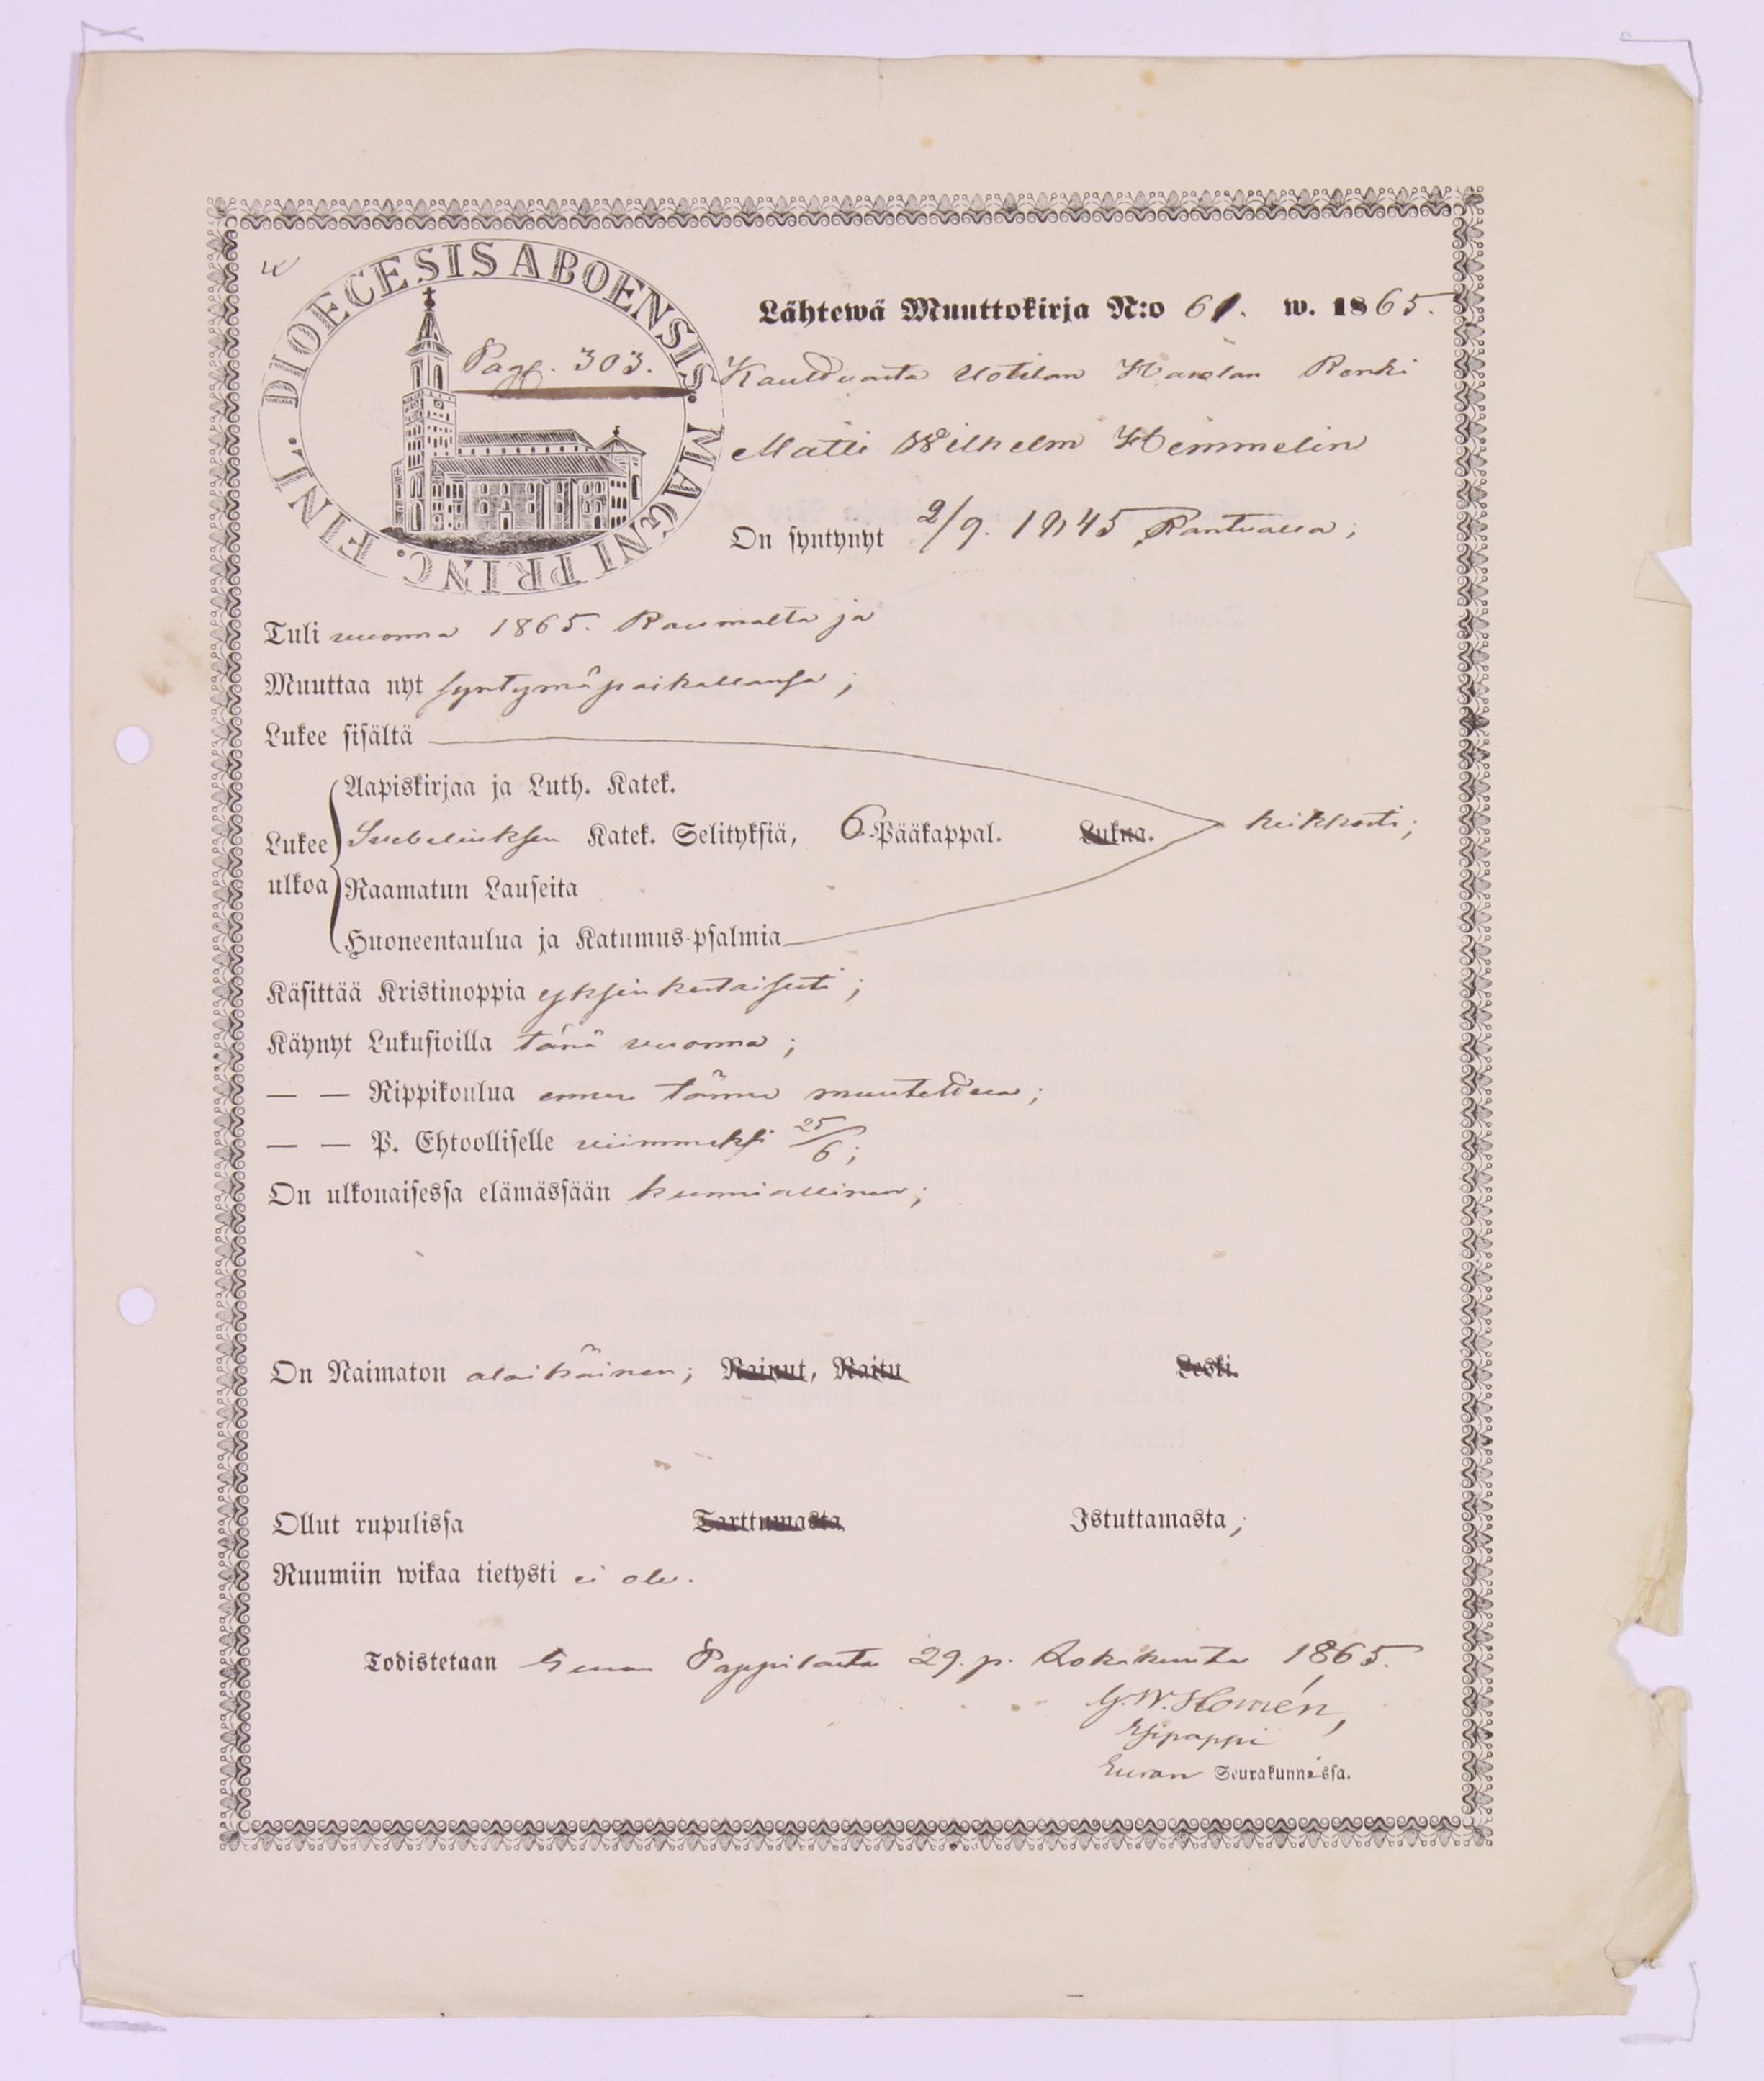 DIOECESIS ABOENSIS. MAGNI PRINC. FINL.
Pag. 303.
Lähtewä Muuttokirja N:o 61. w. 1865.
Kauttuasta Uotilan Renki
Matti Wilhelm Hemmelin
On syntynyt 2/9. 1845
Tuli vuonna 1865. Raumalta ja
Muuttaa nyt syntymäpaikallensa;
Lukee sisältä
Aapiskirjaa ja Luth. Katek.
Lukee ulkoa
Svebeliuksen Katek. Selityksiä, 6 Pääkappal. Lukua. heikkosti;
Raamatun Lauseita
Huoneentaulua ja Katumus-psalmia
Käsittää Kristinoppia yksinkertaisesti;
Käynyt Lukusioilla tänä vuonna;
— — Rippikoulua ennen tänne muutettua;
— — P. Ehtoolliselle viimmeksi 25/6;
On ulkonaisessa elämässään kunniallinen;
On Naimaton alaikäinen; Nainut, Naitu Leski.
Ollut rupulissa Tarttumasta Istuttamasta;
Ruumiin wikaa tietysti ei ole.
Todistetaan Euran Pappilasta 29. p. Lokakuuta 1865.
G. W. Homén,
Esipappi
Euran Seurakunnassa.